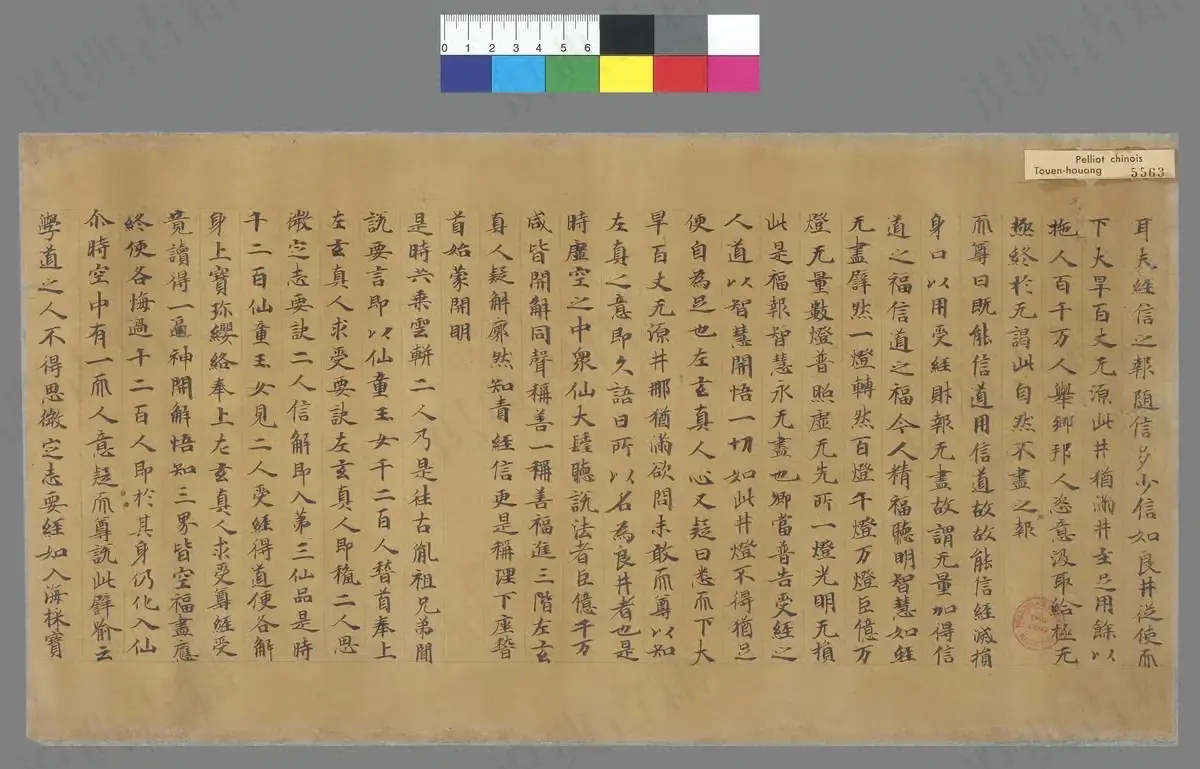 0 1 2 3 4 5 6
Pelliot chinois
Touen-houang 5563
耳夫經信之報随信多少信如良井從使而
下大旱百丈无源此井猶滿井至足用餘以
拖人百千万人舉鄉邦人恣意汲取給極无
極終於无謁此自然不盡之報
而尊曰既能信道用信道故故能信經減損
身口以用受經財報无盡故謂无量加得信
道之福信道之福今人精福聰明智慧如經
无盡譬然一燈轉然百燈千燈万燈巨億万
燈无量數燈普照虛无先所一燈光明无損
此是福報智慧永无盡也卿當普告受經之
人道以智慧開悟一切如此井燈不得猶足
便自為足也左玄真人心又疑曰悉而下大
旱百丈无源井那猶滿欲問未敢而尊以知
左真之意即久語曰所以名為良井者也是
時虛空之中衆仙大聖聽說法者巨億千万
咸皆開解同聲稱善一稱善福進三階左玄
真人疑解廓然知責經信更是稱理下座稽
首始蒙開明
是時共乘雲軿二人乃是往古胤祖兄弟聞
說要言即以仙童玉女千二百人稽首奉上
左玄真人求受要訣左玄真人即授二人思
微定志要訣二人信解即入第三仙品是時
千二百仙童玉女見二人受經得道便各解
身上寶珎纓絡奉上左玄真人求受尊經受
竟讀得一遍神開解悟知三界皆空福盡應
終便各悔過千二百人即於其身仍化入仙
尒時空中有一而人意疑而尊說此譬喻云
學道之人不得思微定志要經如入海採寶